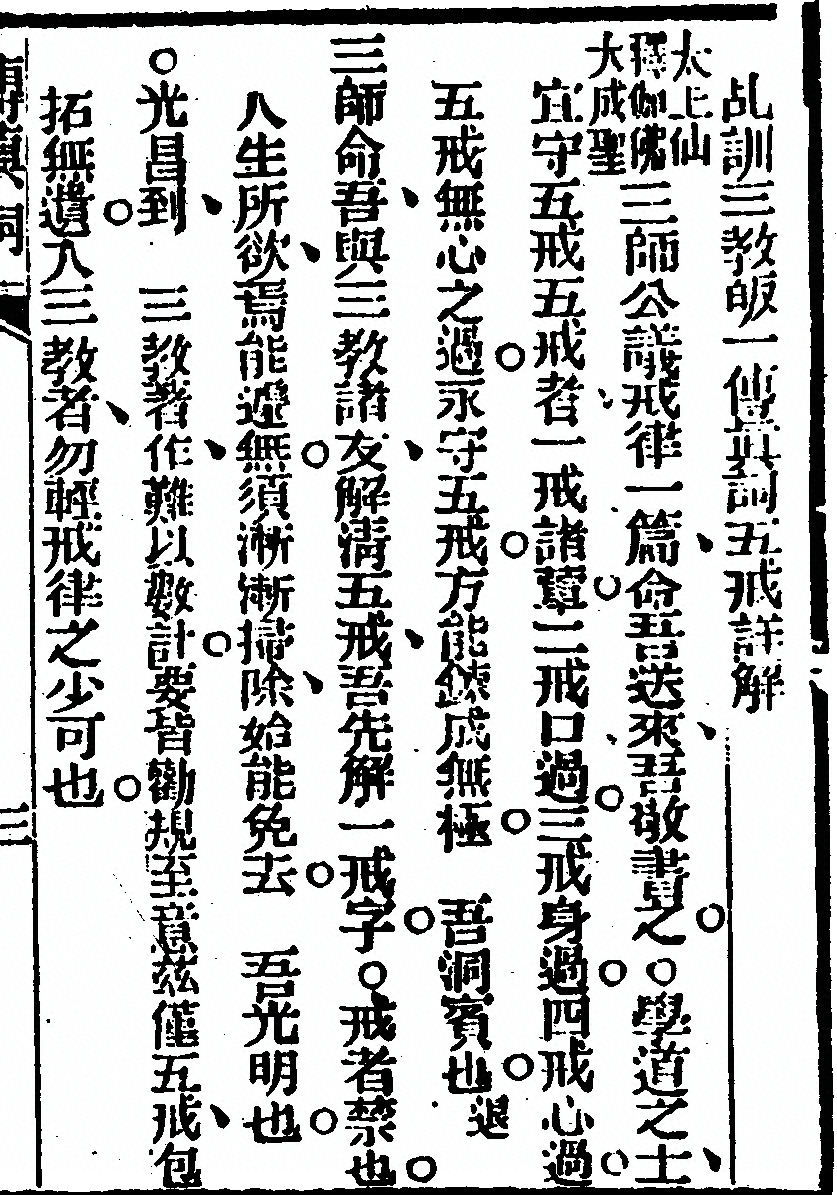 乩訓三教皈一傳真詞五戒註解
太上仙
釋伽佛
大成聖
三師公議戒律一篇、命吾送來、吾敬書之。○學道之士、
宜守五戒五戒者、一戒諸葷。二戒口過。三戒身過。四戒心過。
五戒無心之過。永守五戒。方能鍊成無極。 吾洞賓也。退
三師命吾、與三教諸友、解清五戒、吾先解一戒字。○戒者禁也。
人生所欲、焉能遊無。須漸漸掃除、始能免去。 吾光明也。
○光昌到、 三教著作、難以數計。要皆勸規至意茲僅五戒、包
拓無遺。入三教者、勿輕戒律之少可也。
傳真詞
三